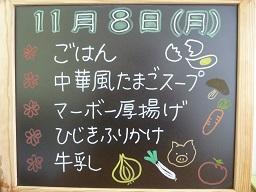 11月8日(月)
ごはん
中華風たまごスープ
マーボー厚揚げ
ひじきふりかけ
牛乳